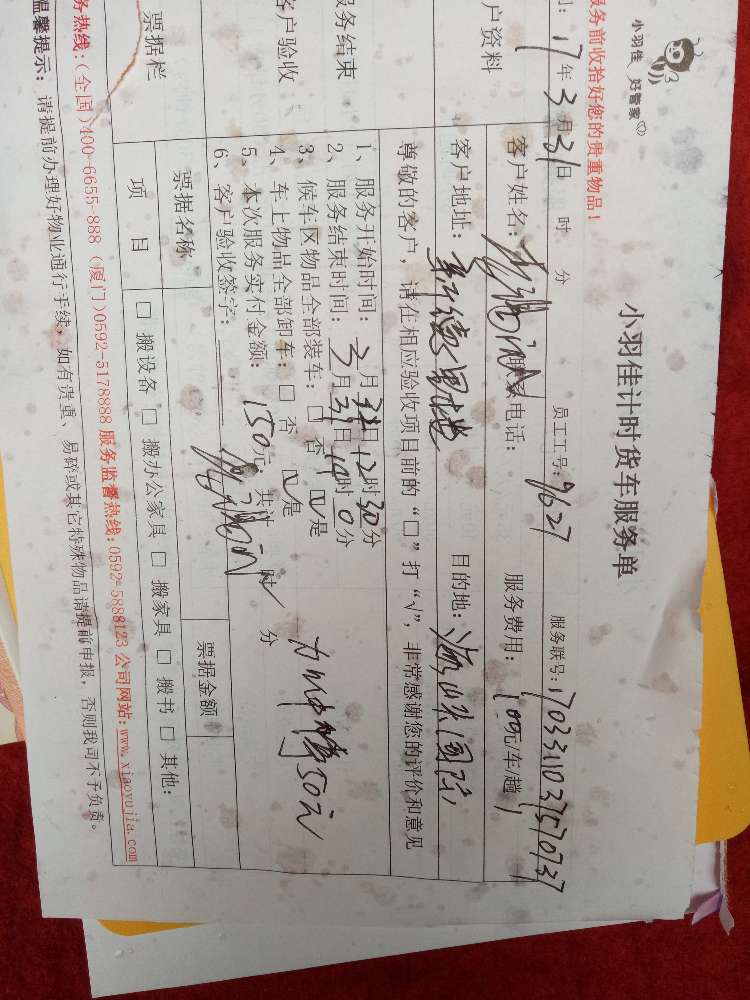 小羽佳 好管家
小羽佳计时货车服务单
服务前收拾好您的贵重物品！
17年3月31日 时 分 员工工号：9627 服务联号：1703311037570737
户资料
客户姓名： 电话： 服务费用：100元/车/趟
客户地址： 目的地：海峡国际
尊敬的客户，请在相应验收项目前的“□”打“√”，非常感谢您的评价和意见
服务结束
客户验收
1、服务开始时间：3月31日12时30分
2、服务结束时间：3月31日14时0分
3、候车区物品全部装车：□否 ☑是
4、车上物品全部卸车：□否 ☑是
5、本次服务实付金额：150元 共计 时 分
加钟费50元
6、客户验收签字：
票据栏
票据名称 票据金额
项目 □搬设备 □搬办公家具 □搬家具 □搬书 □其他：
务热线：（全国）400-6655-888（厦门）0592-5178888 服务监督热线：0592-5888123 公司网站：www.xiaoyujia.com
温馨提示：请提前办理好物业通行手续，如有贵重、易碎或其它特殊物品请提前申报，否则我司不予负责。